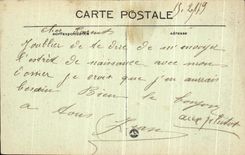 15.2/19
CARTE POSTALE
CORRESPONDANCE
ADRESSE
J'oublier de te dire de m'envoyer
l'extrait de naissance avec mon
car je crois que j'en aurais
besoin Bien le bonjour
a tous
Jean